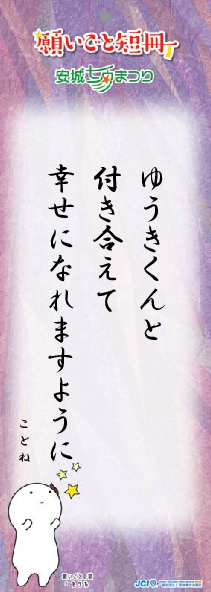 願いごと短冊
安城七夕まつり
ゆうきくんと
付き合えて
幸せになれますように
ことね
JCI